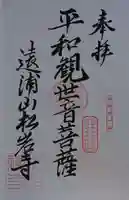 奉拝
平和観世音菩薩
遠浦山松岩寺